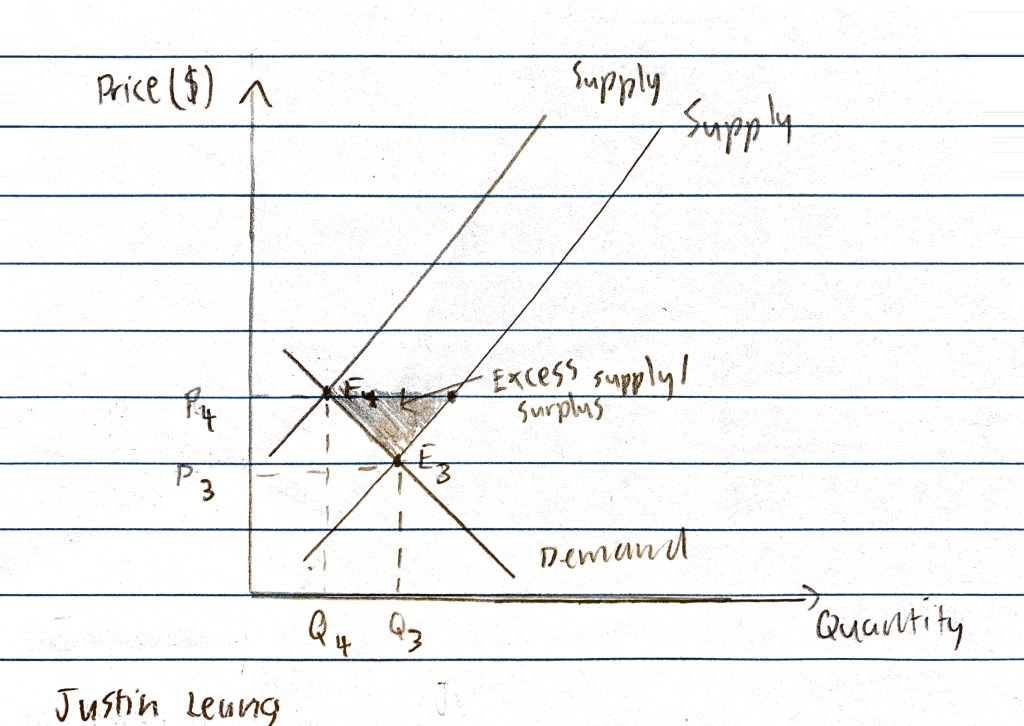 Price ($)
Supply
Supply
P4
E4
Excess supply/
surplus
P3
E3
Demand
Q4
Q3
Quantity
Justin Leung